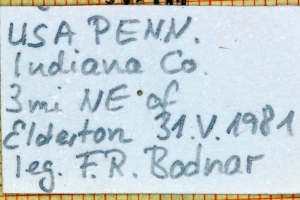 USA PENN.
Indiana Co.
3mi NE of
Elderton 31.V.1981
leg. F.R. Bodnar